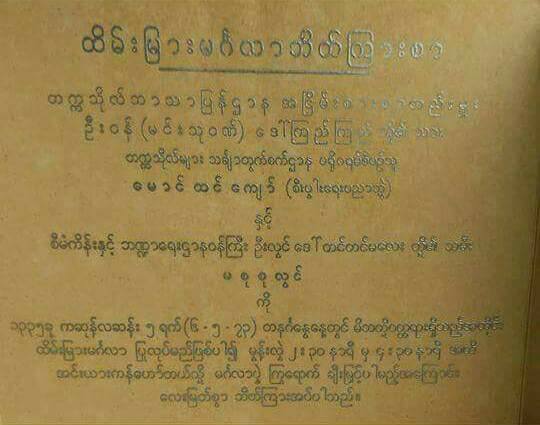 ထိမ်းမြားမင်္ဂလာဘိတ်ကြားစာ
တက္ကသိုလ်ဘာသာပြန်ဌာန အငြိမ်းစားစာတည်းမှူး
ဦးဝန် (မင်းသုဝဏ်) ဒေါ်ကြည်ကြည် တို့၏ သား
တက္ကသိုလ်များ သင်္ချာတွက်စက်ဌာန ပရိုဂရမ်စီမံသူ
မောင် ထင် ကျော် (စီးပွါးရေးပညာဘွဲ့)
နှင့်
စီမံကိန်းနှင့် ဘဏ္ဍာရေးဌာနဝန်ကြီး ဦးလွင် ဒေါ်တင်တင်မလေး တို့၏ သမီး
မ စု စု လွင်
ကို
၁၃၃၅ခု ကဆုန်လဆန်း ၅ ရက် (၆ - ၅ - ၇၃) တနင်္ဂနွေနေ့တွင် မိဘတို့ဝတ္တရားရှိသည့်အတိုင်း
ထိမ်းမြားမင်္ဂလာ ပြုလုပ်မည်ဖြစ်ပါ၍ မွန်းလွဲ ၂ း ၃၀ နာရီ မှ ၄ း ၃၀ နာရီ အထိ
အင်းယားကန်ဟော်တယ်သို့ မင်္ဂလာပွဲ ကြွရောက် ချီးမြှင့်ပါမည့်အကြောင်း
လေးမြတ်စွာ ဘိတ်ကြားအပ်ပါသည်။